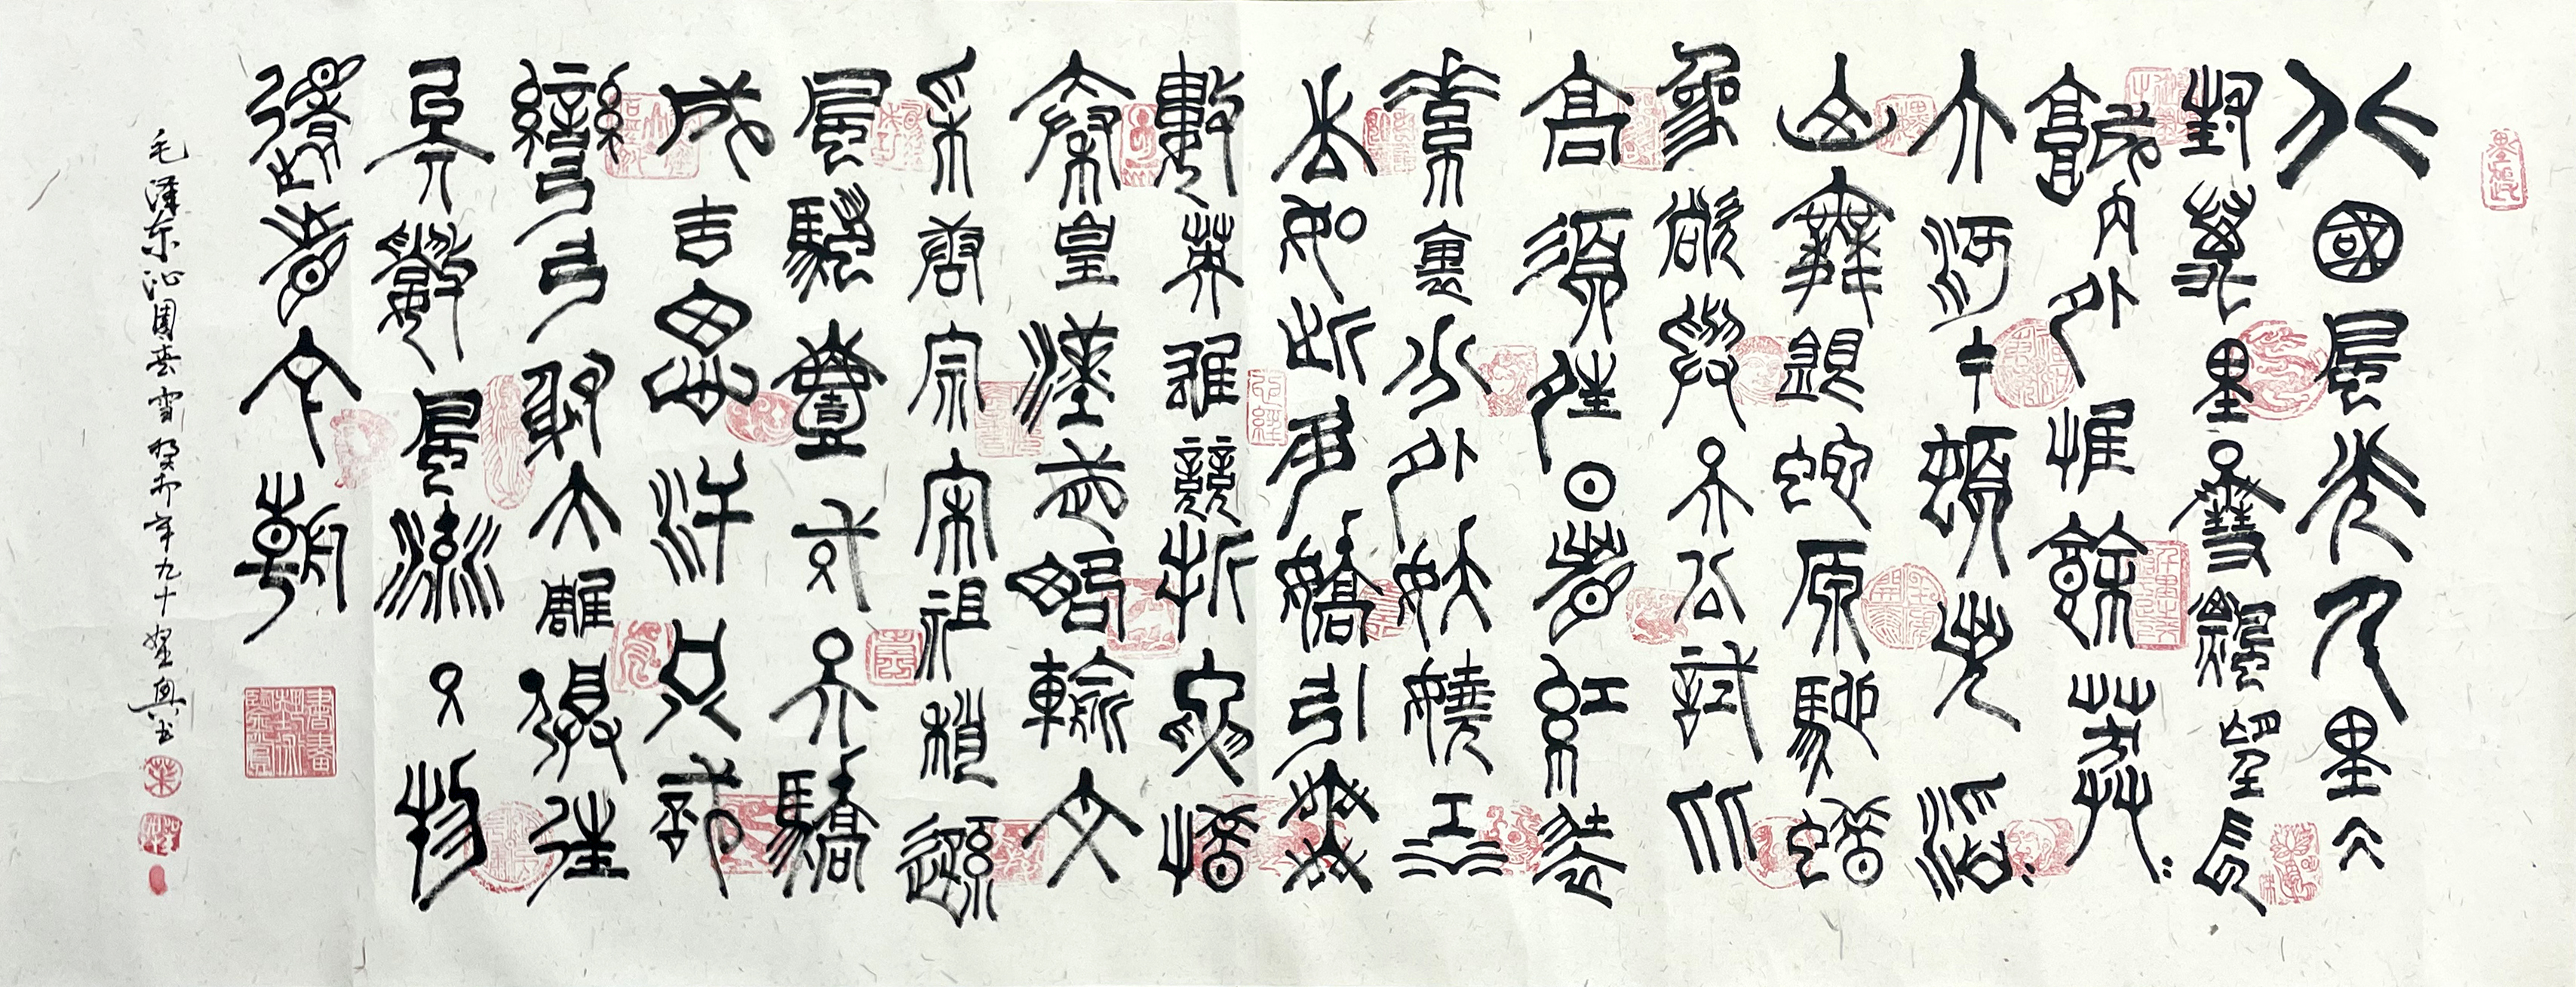 北國風光千里冰
封萬里雪飄望長
城內外惟餘莽〻
大河上下頓失滔〻
山舞銀蛇原馳蠟
象欲與天公試比
高須晴日看紅裝
素裹分外妖嬈江
山如此多嬌引無
數英雄競折腰惜
秦皇漢武略輸文
采唐宗宋祖稍遜
風騷一代天驕
成吉思汗只識
彎弓射大雕俱往
矣數風流人物
還看今朝
毛澤东沁園春雪癸卯年九十